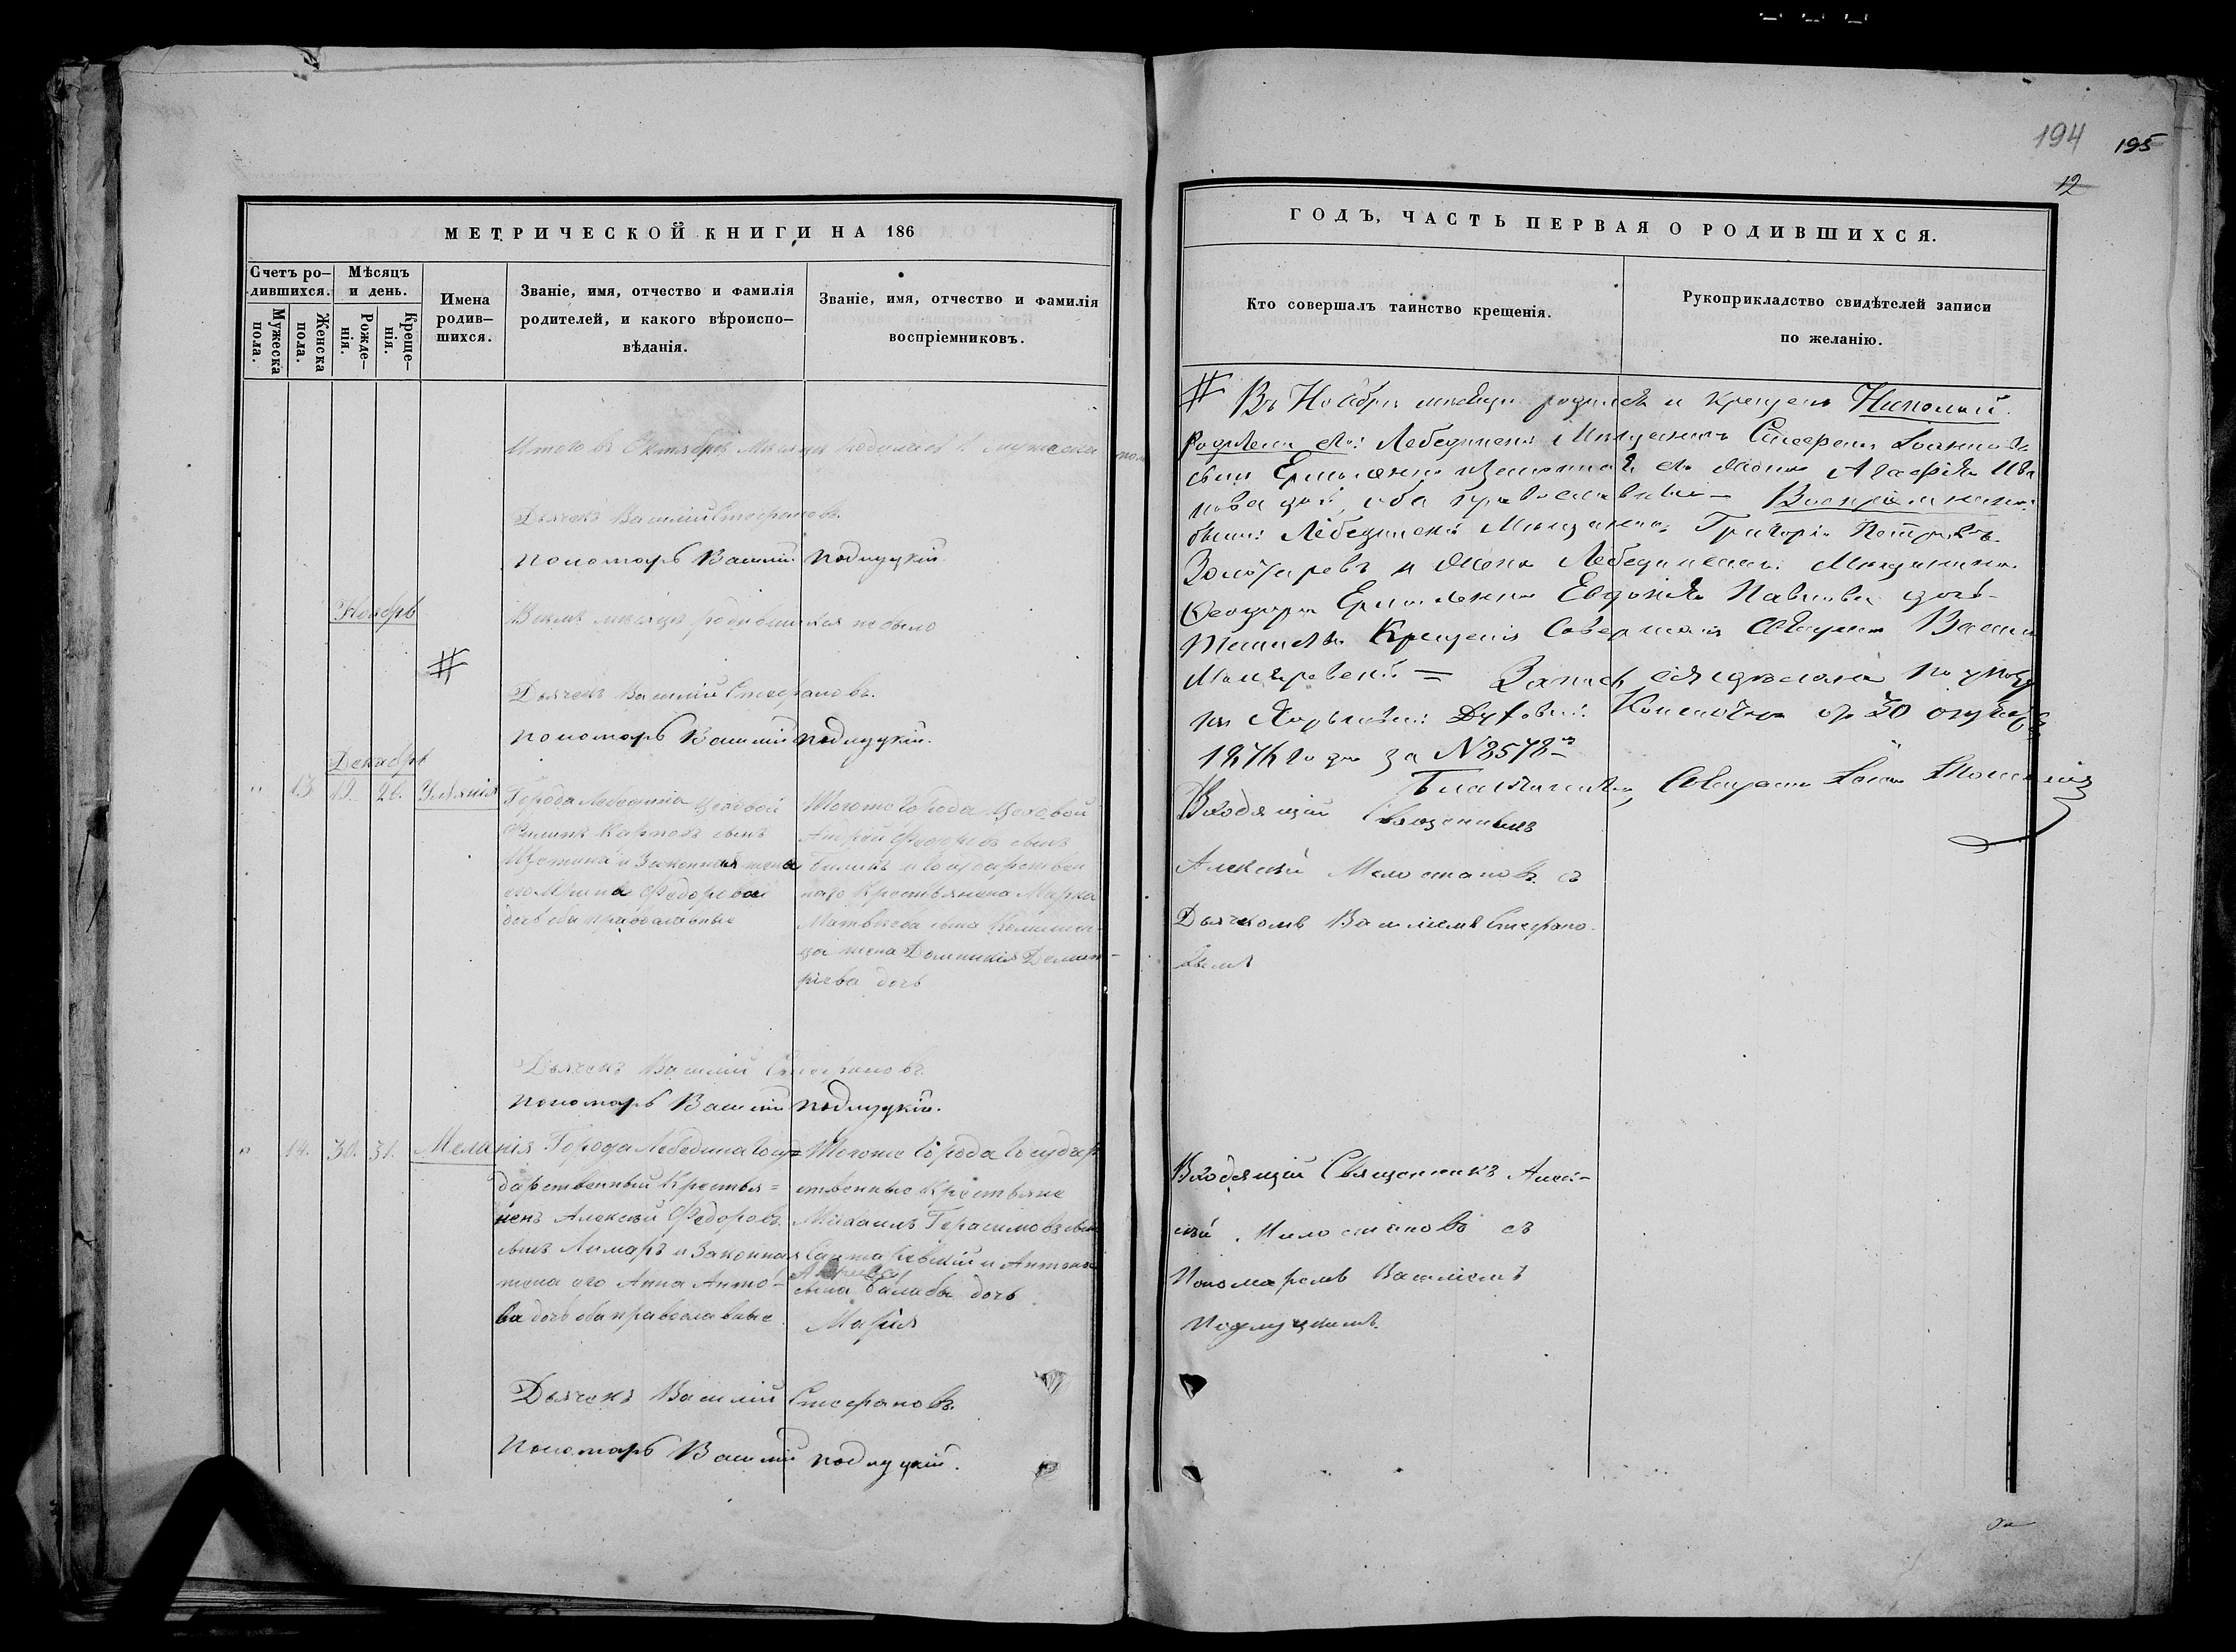 194 195
12
МЕТРИЧЕСКОЙ КНИГИ НА 186
Счетъ ро-
дившихся.
Мужеска
пола.
Женска
пола.
Мѣсяцъ
и день.
Рожде-
нія.
Креще-
нія.
Имена
родив-
шихся.
Званіе, имя, отчество и фамилія
родителей, и какого вѣроиспо-
вѣданія.
Званіе, имя, отчество и фамилія
воспріемниковъ.
Итого въ Октябрѣ Мѣсяцѣ родилось мужеска
Дьячекъ Василій Стефановъ.
Пономарь Василій Подлуцкій.
Ноябрь
Въ семъ мѣсяцѣ родившихся не было
#
Дьячекъ Василій Стефановъ.
Пономарь Василій Подлуцкій.
Декабрь
" 13. 19. 26. Уліанія
Города Лебедина Цеховой
Филипъ Карповъ сынъ
и Законная жена
его Ирина Федорова
дочь оба православные
Тогоже Города Цеховой
Андрей Федоровъ сынъ
и Государствен
наго Крестьянина Марка
Матвѣева сына
жена Домникія Димит-
ріева дочь
Дьячекъ Василій Стефановъ.
Пономарь Василій Подлуцкій.
" 14. 30. 31. Меланія
Города Лебедина Госу=
дарственный Крестья=
нинъ Алексѣй Федоровъ
сынъ Лимарь и Законная
жена его Анна Анто-
ва дочь оба православные
Тогоже Города Государ
ственные Крестьяне
Михаилъ Герасимовъ сынъ
и Антона
сына Балабы дочь
Марія
Дьячекъ Василій Стефановъ.
Пономарь Василій Подлуцкій.
ГОДЪ, ЧАСТЬ ПЕРВАЯ О РОДИВШИХСЯ.
Кто совершалъ таинство крещенія.
Рукоприкладство свидѣтелей записи
по желанію.
# Въ Ноябрѣ мѣсяцѣ родился и крещенъ Николай.
Родители его: Лебединскій Мѣщанинъ Стефанъ Іоанновъ
сынъ Ермоленко и законная его жена Агафія Ива
нова дочь, оба православные — Воспріемники
были: Лебединскій Мѣщанинъ Григорій Петровъ
Золотаревъ и жена Лебединскаго Мѣщанина
Ѳеодора Ермоленка Евдокія Павлова дочь
Таинство Крещенія Совершалъ Священникъ Васи
= Запись сія сдѣлана по указу
изъ Харьковской Духовной Консисторіи отъ 30
1874 года за N 8578
Благочинный, Священникъ Іоаннъ
Входящій Священникъ
Алексѣй Милостановъ съ
Дьячкомъ Василіемъ Стефано-
вымъ
Входящій Священникъ Алек-
сѣй Милостановъ съ
Пономаремъ Василіемъ
Подлуцкимъ.